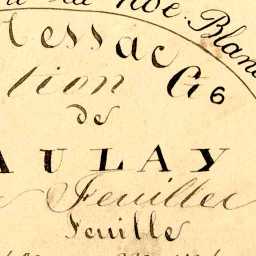 la Noë Blanc
essac
tion G6
de
AULAY
Feuille
Feuille